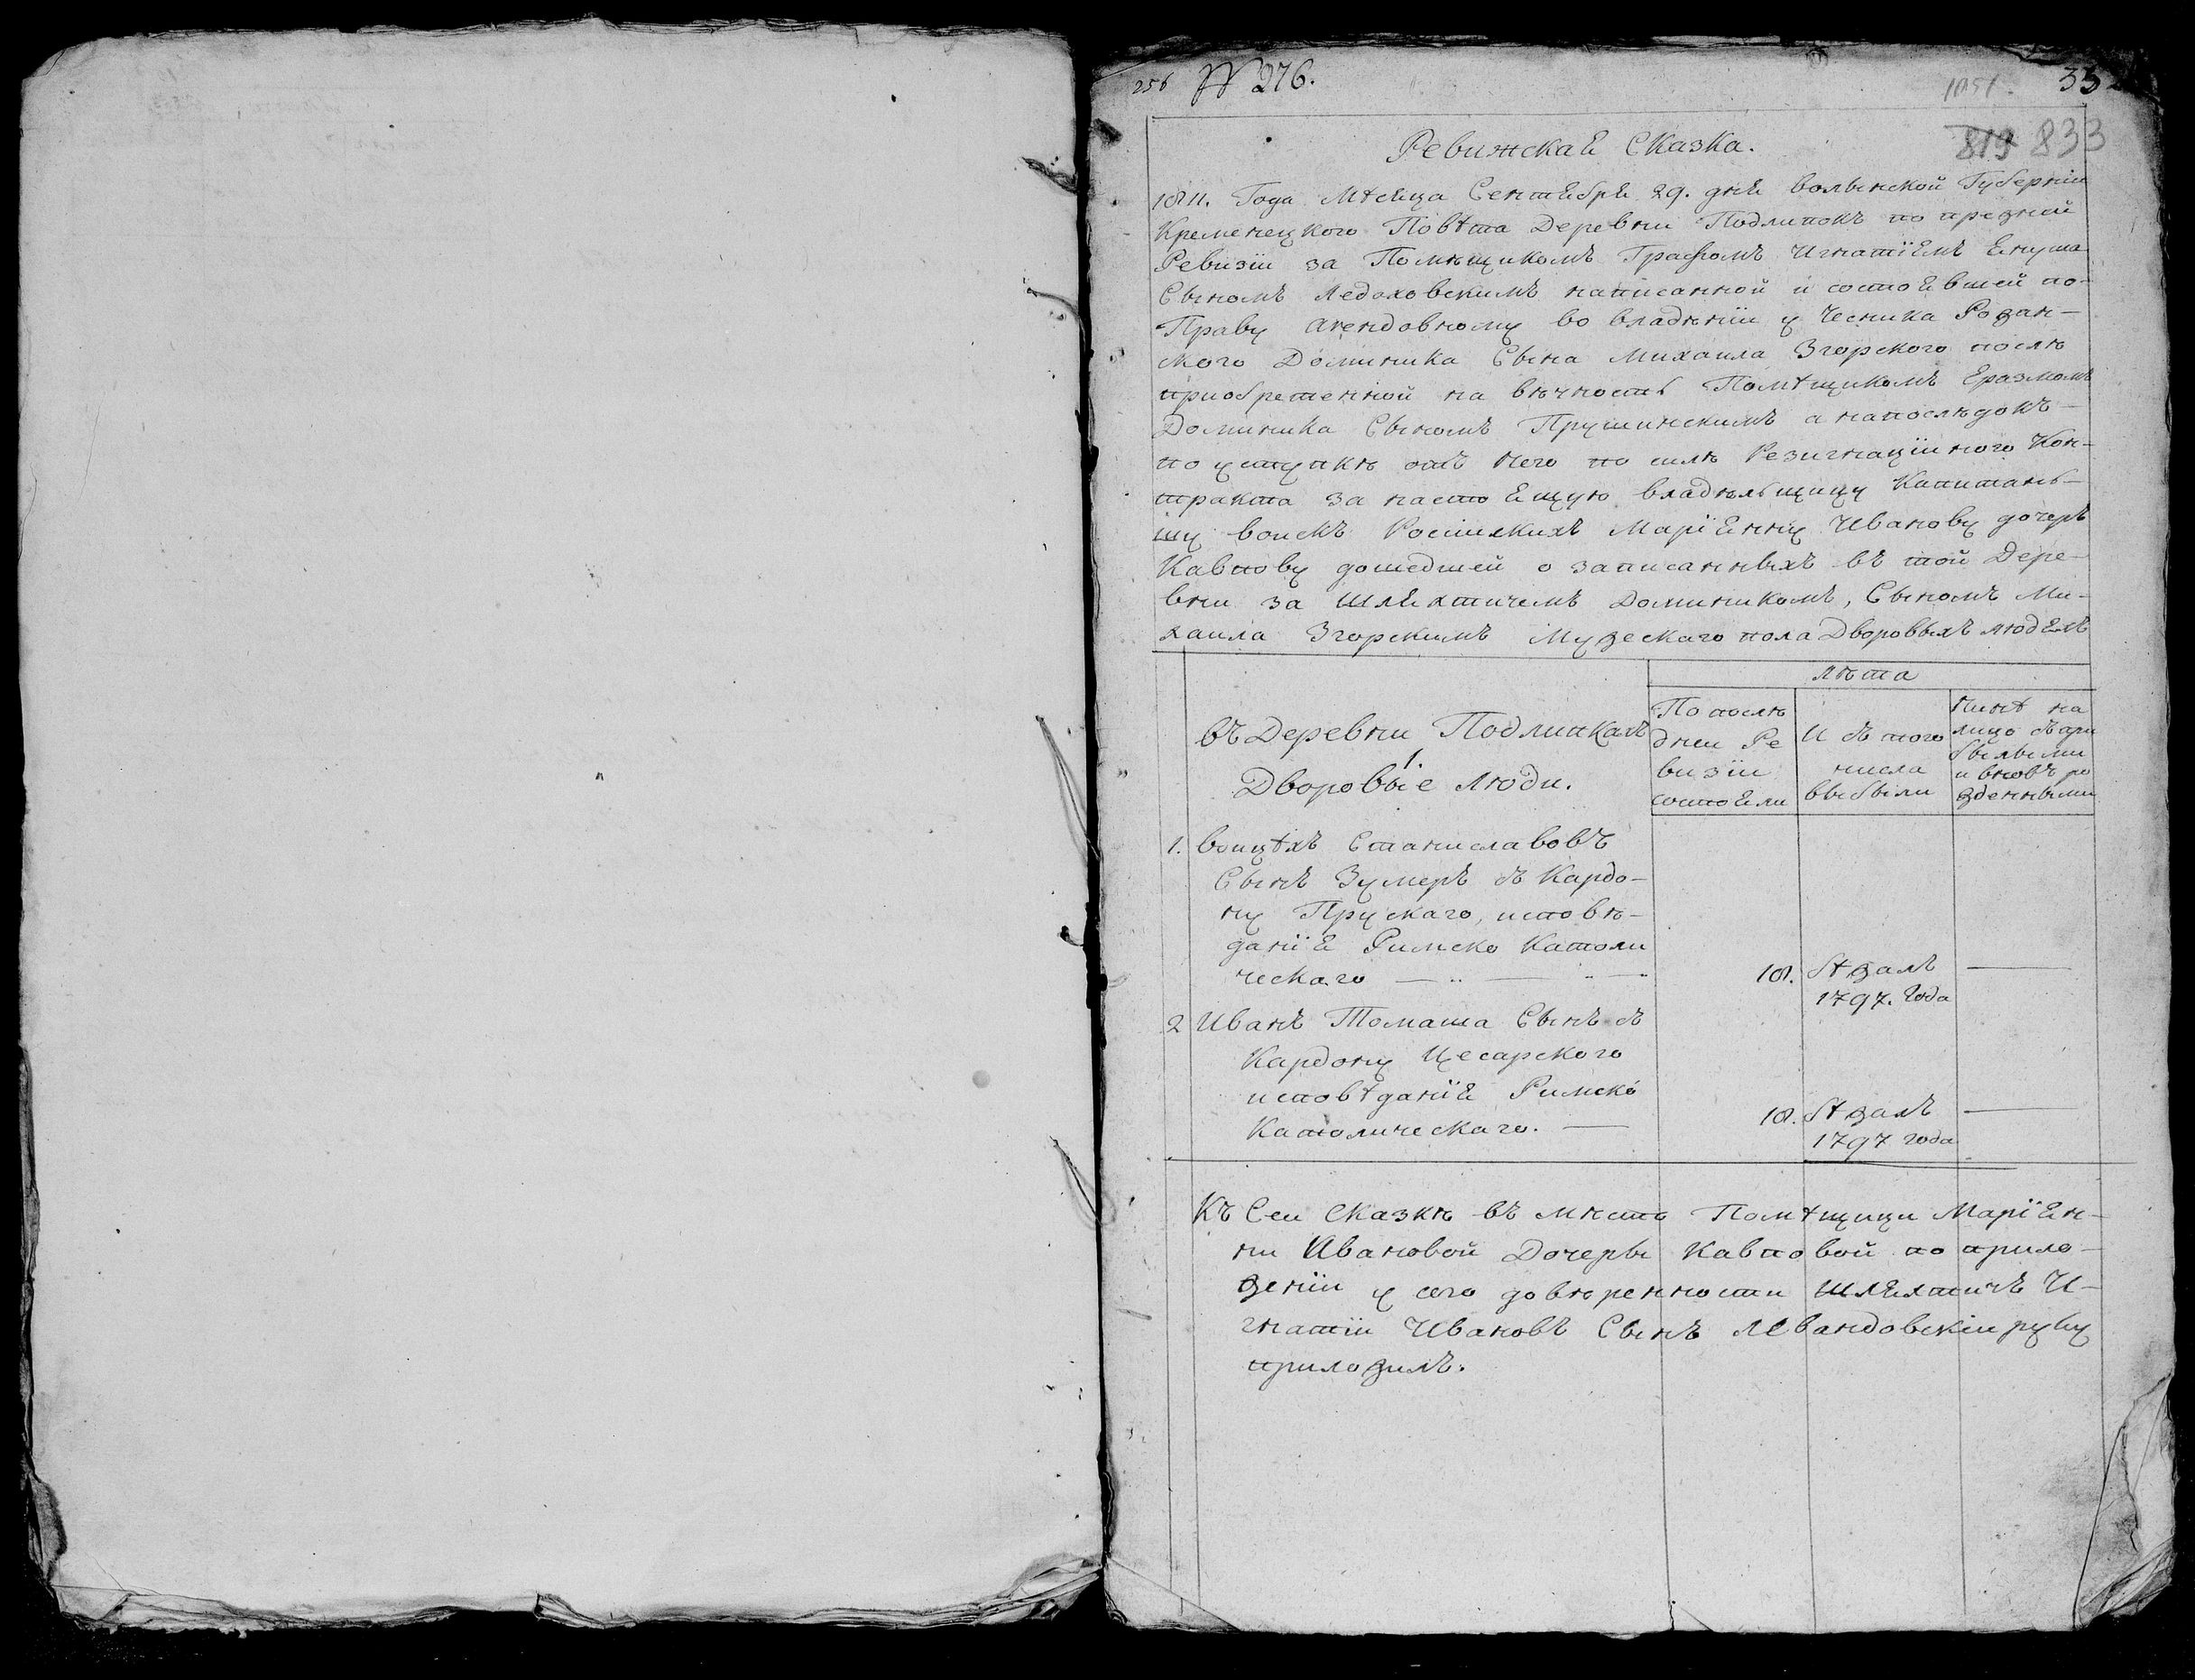 256 № 276. 1051. 33
819 833
Ревижская Сказка.
1811. Года Мѣсяца Сентября 29. дня Волынской Губерніи
Кременецкого Повѣта Деревни Подлипокъ по прежней
Ревизіи за Помѣщикомъ Графомъ Игнатіемъ Януша
Сыномъ Ледоховскимъ написанной и состоявшей по-
Праву арендовному во владѣніи у Чесника Рожан-
ского Доминика Сына Михаила Згорского послѣ
приобретенной на вѣчность Помѣщикомъ Еразмомъ
Доминика Сыномъ Прушинскимъ а напослѣдокъ-
по уступкѣ отъ него по силѣ Резигнаціиного Кон-
тракта за настоящую владѣльщицу Капитань-
шу воискъ Россіискихъ Маріянну Иванову дочерь
Кавпову дошедшей о записанныхъ въ той Дере-
вни за шляхтичемъ Доминикомъ, Сыномъ Ми-
хаила Згорскимъ Мужескаго пола Дворовыхъ людяхъ
лѣта
въ Деревни Подлипкахъ
1.
Дворовые люди.
По послѣ
днеи Ре
визіи
состояли
И съ того
числа
выбыли
Нинѣ на
лицо съ при
былыми
и вновь ро
жденными
1. Воицѣхъ Станиславовъ
Сынъ Зумеръ съ Кардо-
ну Прускаго, исповѣ-
данія Римско Католи
ческаго — 18. бѣжалъ —
1797. года
2 Иванъ Томаша Сынъ съ
Кардону Цесарского
исповѣданія Римско
Католическаго. — 18. бѣжалъ —
1797 года
Къ Сеи Сказкѣ въ мѣсто Помѣщици Маріян-
ни Ивановой Дочеры Кавповой по прило-
женіи у сего довѣренности шляхтичъ И-
гнатіи Ивановъ Сынъ Левандовскіи руку
приложилъ.